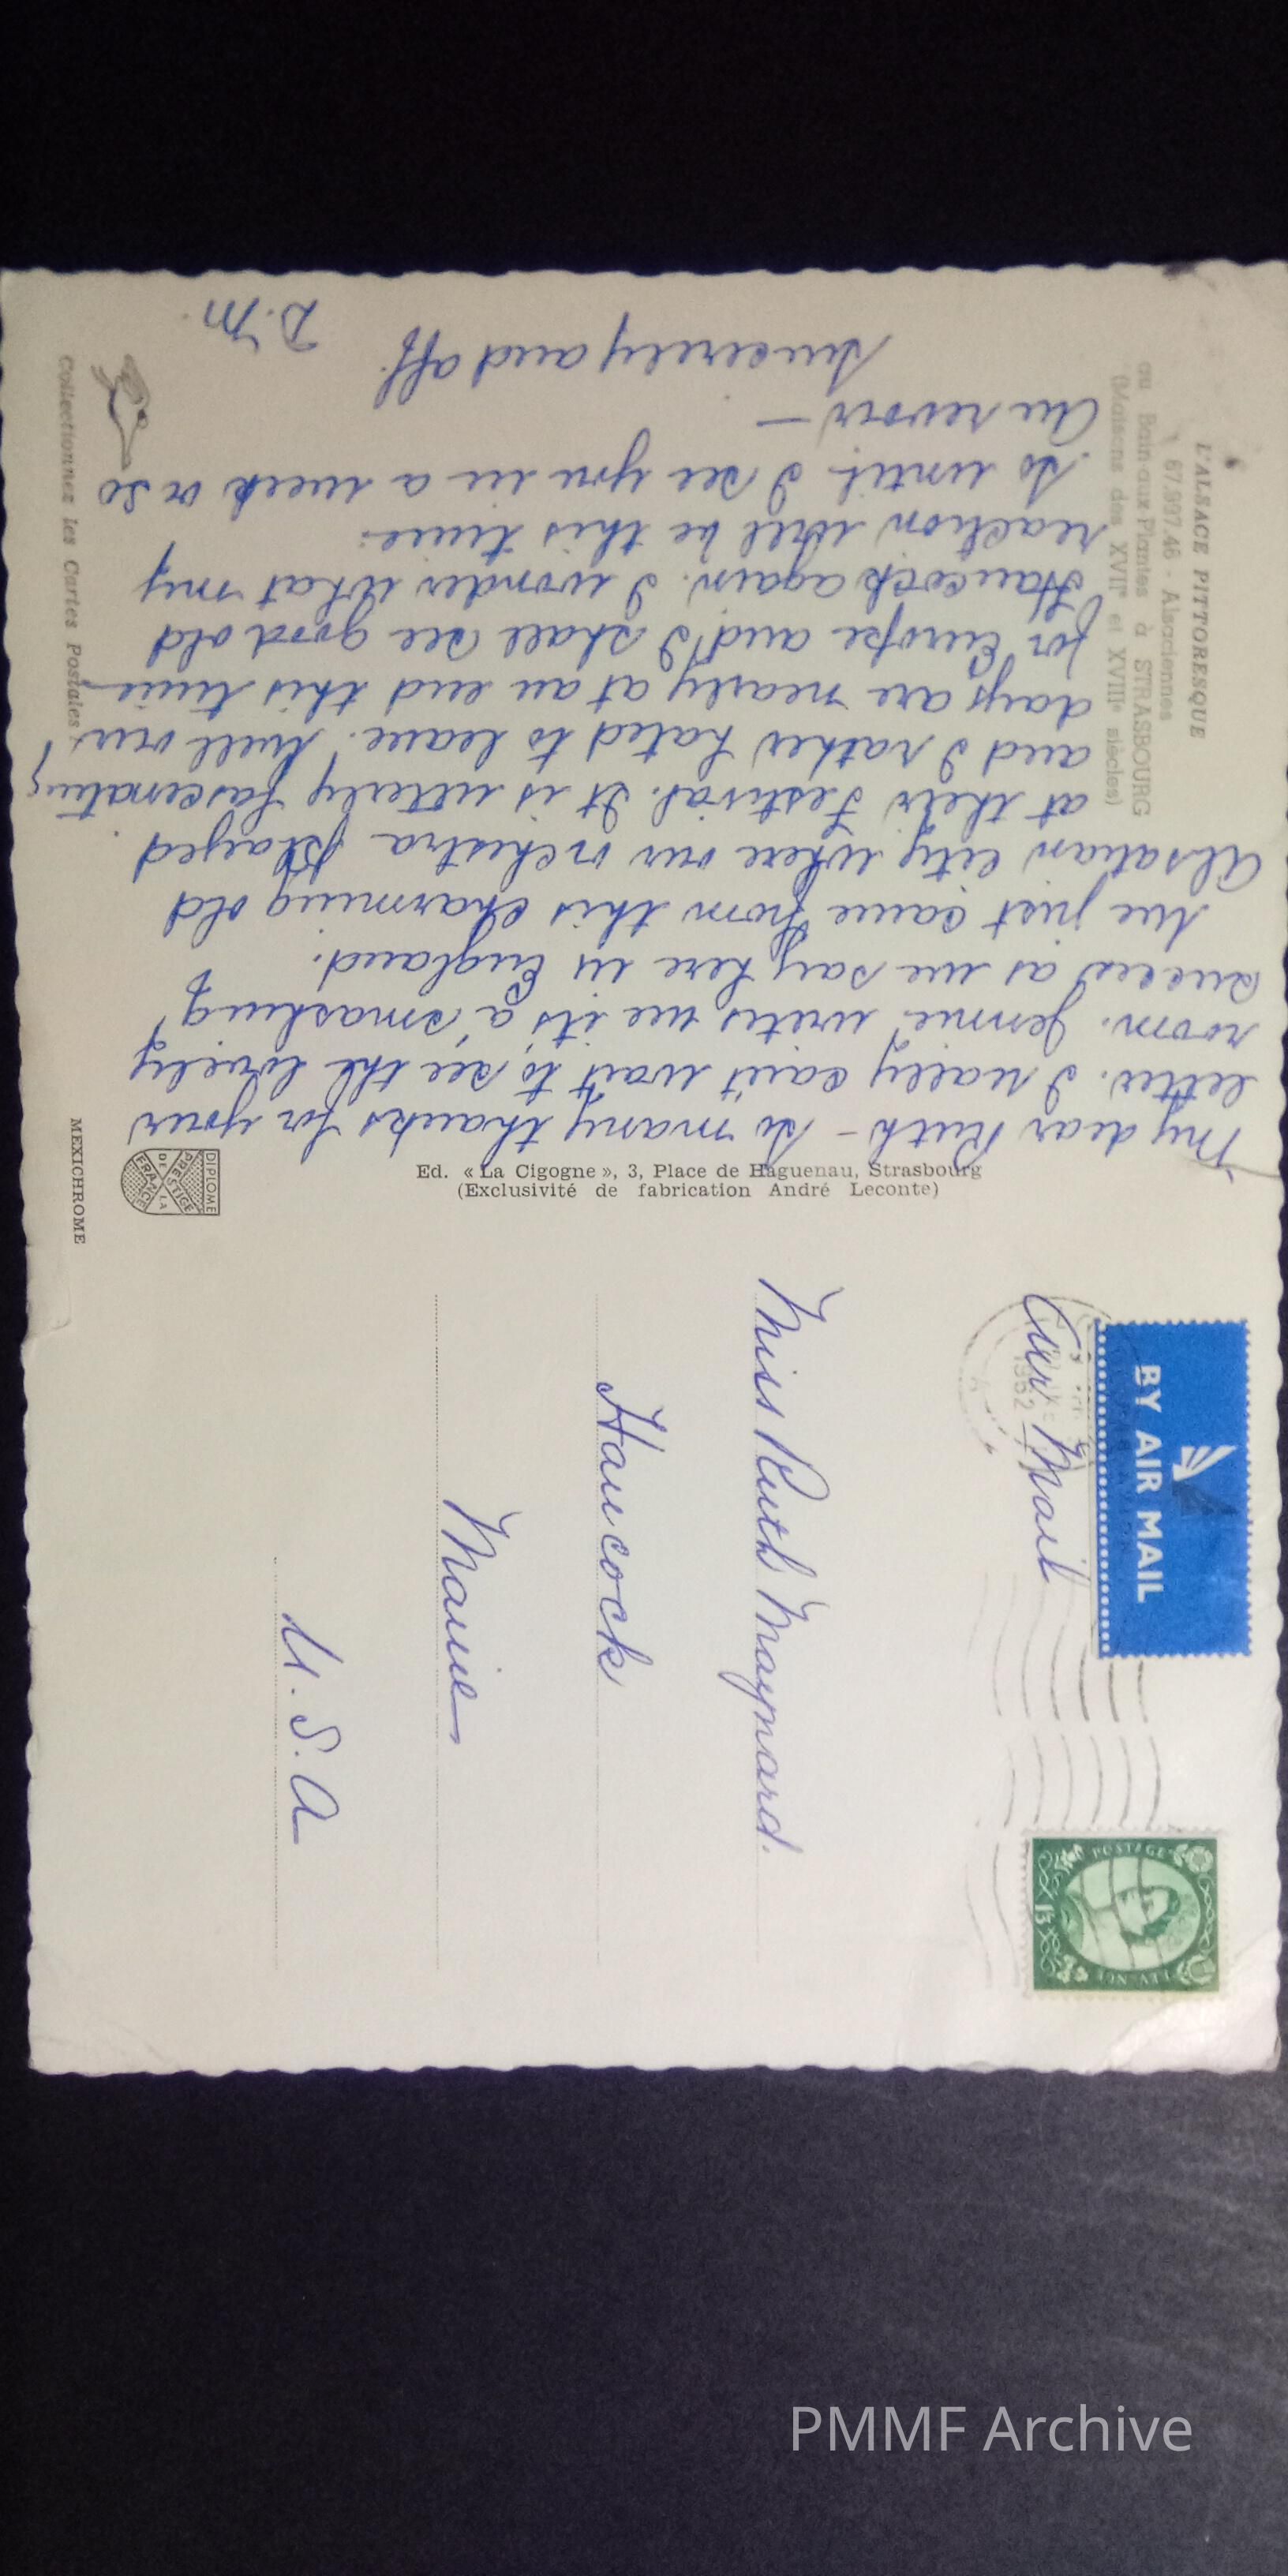 L'ALSACE PITTORESQUE
67.997.46 - Alsaciennes
au Bain-aux-Plantes à STRASBOURG
(Maisons des XVIIe et XVIIIe siècles)
My dear Ruth - So many thanks for your
letter. I really can't wait to see the lovely
room. Jennie writes me it's a 'smashing'
as we say here in England.
We just came from this charming old
Alsatian city where our orchestra played
at their Festival. It is utterly fascinating
and I rather hated to leave. Well our
days are nearly at an end this time
for Europe and I shall see good old
Hancock again. I wonder what my
reaction will be this time.
So until I see you in a week or so
Au revoir —
Sincerely and aff.
D.M.
Collectionnez les Cartes Postales
MEXICHROME
DIPLOME
PRESTIGE
DE LA
FRANCE
Ed. « La Cigogne », 3, Place de Haguenau, Strasbourg
(Exclusivité de fabrication André Leconte)
BY AIR MAIL
Air Mail
1962
POSTAGE
REVENUE
1/3
Miss Ruth Maynard.
Hancock
Maine
U.S.A
PMMF Archive